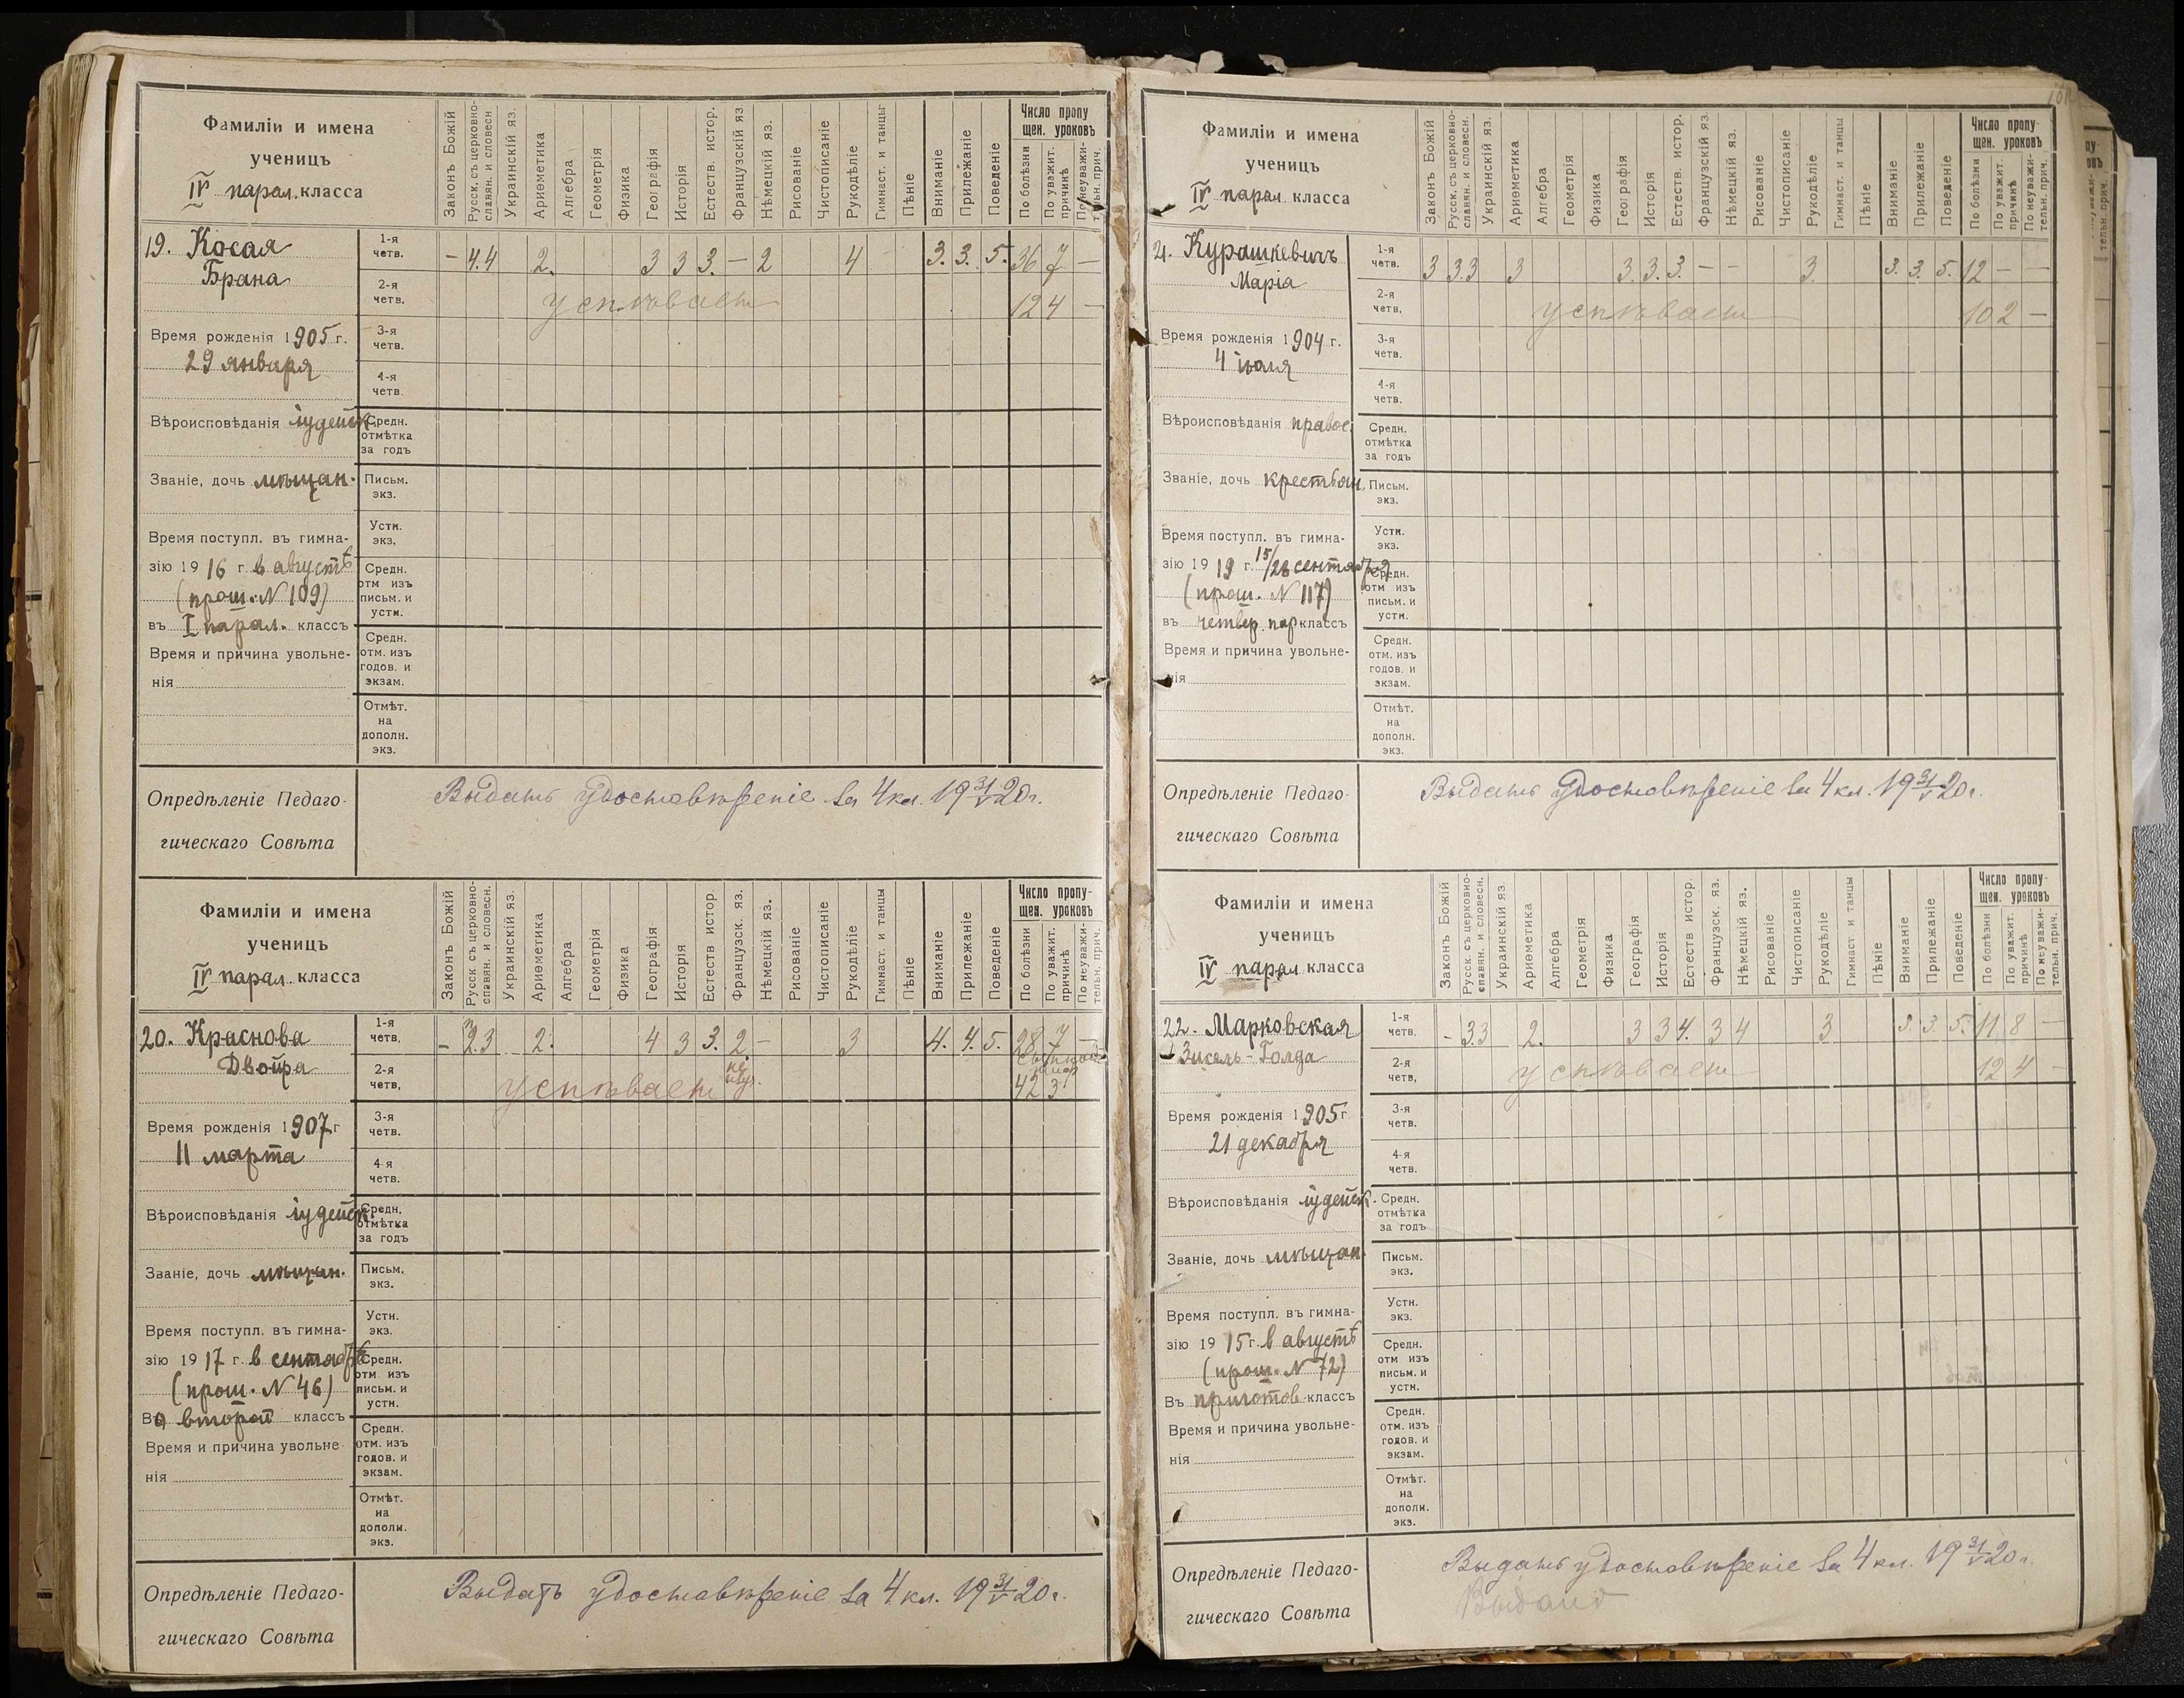 Фамиліи и имена
ученицъ
IV парал. класса
Законъ Божій
Русск. съ церковно-славян. и словесн.
Украинскій яз.
Ариѳметика
Алгебра
Геометрія
Физика
Географія
Исторія
Естеств. истор.
Французскій яз.
Нѣмецкій яз.
Рисованіе
Чистописаніе
Рукодѣліе
Гимнаст. и танцы
Пѣніе
Вниманіе
Прилежаніе
Поведеніе
Число пропу
щен. уроковъ
По болѣзни
По уважит. причинѣ
По неуважи-тельн. прич.
19. Косая
Брана
1-я четв. - 4.4 2. 3 3 3. - 2 4 3. 3. 5. 36 7 -
2-я четв. успѣваетъ 12 4 -
Время рожденія 1905 г.
29 января
3-я четв.
4-я четв.
Вѣроисповѣданія іудейск.
Средн. отмѣтка за годъ
Званіе, дочь мѣщан.
Письм. экз.
Время поступл. въ гимна-
Устн. экз.
зію 1916 г. в августѣ
(прош. N 109)
Средн. отм изъ письм. и устн.
въ I парал. классъ
Время и причина увольне-
нія
Средн. отм. изъ годов. и экзам.
Отмѣт. на дополн. экз.
Опредѣленіе Педаго-
гическаго Совѣта
Выдать удостовѣреніе за 4 кл. 19 31/V 20 г.
Фамиліи и имена
ученицъ
IV парал. класса
Законъ Божій
Русск съ церковно-славян. и словесн.
Украинскій яз.
Ариѳметика
Алгебра
Геометрія
Физика
Географія
Исторія
Естеств истор
Французск. яз.
Нѣмецкій яз.
Рисованіе
Чистописаніе
Рукодѣліе
Гимнаст. и танцы
Пѣніе
Вниманіе
Прилежаніе
Поведеніе
Число пропу-
щен. уроковъ
По болѣзни
По уважит. причинѣ
По неуважи-тельн. прич.
20. Краснова
Двойра
1-я четв. - 2 3 2. 4 3 3. 2. - 3 4. 4. 5. 28 7 -
2-я четв. успѣваетъ 42 3
Время рожденія 1907 г
11 марта
3-я четв.
4-я четв.
Вѣроисповѣданія іудейск.
Средн. отмѣтка за годъ
Званіе, дочь мѣщан.
Письм. экз.
Время поступл. въ гимна-
Устн. экз.
зію 1917 г. в сентябрѣ
(прош. N 46)
Средн. отм изъ письм. и устн.
Во второй классъ
Время и причина увольне
нія
Средн. отм. изъ годов. и экзам.
Отмѣт. на дополн. экз.
Опредѣленіе Педаго-
гическаго Совѣта
Выдать удостовѣреніе за 4 кл. 19 31/V 20 г.
Фамиліи и имена
ученицъ
IV парал класса
Законъ Божій
Русск. съ церковно-славян. и словесн.
Украинскій яз.
Ариѳметика
Алгебра
Геометрія
Физика
Географія
Исторія
Естеств. истор.
Французскій яз.
Нѣмецкій яз.
Рисованіе
Чистописаніе
Рукодѣліе
Гимнаст. и танцы
Пѣніе
Вниманіе
Прилежаніе
Поведеніе
Число пропу-
щен. уроковъ
По болѣзни
По уважит. причинѣ
По неуважи-тельн. прич.
21. Курашкевичъ
Марія
1-я четв. 3 3.3 3 3. 3. 3. - - 3. 3. 3. 5. 12 - -
2-я четв. успѣваетъ 10 2 -
Время рожденія 1904 г.
4 іюля
3-я четв.
4-я четв.
Вѣроисповѣданія правос.
Средн. отмѣтка за годъ
Званіе, дочь крестьян.
Письм. экз.
Время поступл. въ гимна-
Устн. экз.
зію 1919 г. 15/28 сентября
(прош. N 117)
Средн. отм изъ письм. и устн.
въ четвер. пар классъ
Время и причина увольне-
нія
Средн. отм. изъ годов. и экзам.
Отмѣт. на дополн. экз.
Опредѣленіе Педаго-
гическаго Совѣта
Выдать удостовѣреніе за 4 кл. 19 31/V 20 г.
Фамиліи и имена
ученицъ
IV парал класса
Законъ Божій
Русск. съ церковно-славян. и словесн.
Украинскій яз
Ариѳметика
Алгебра
Геометрія
Физика
Географія
Исторія
Естеств истор.
Французск. яз.
Нѣмецкій яз.
Рисованіе
Чистописаніе
Рукодѣліе
Гимнаст. и танцы
Пѣніе
Вниманіе
Прилежаніе
Поведеніе
Число пропу-
щен. уроковъ
По болѣзни
По уважит. причинѣ
По неуважи-тельн. прич.
22. Марковская
Голда
1-я четв. - 3.3 2. 3 3 4. 3 4 3 3. 3. 5. 11 8 -
2-я четв. успѣваетъ 12 4 -
Время рожденія 1905 г
21 декабря
3-я четв.
4-я четв.
Вѣроисповѣданія іудейск.
Средн. отмѣтка за годъ
Званіе, дочь мѣщан.
Письм. экз.
Время поступл. въ гимна-
Устн. экз.
зію 1915 г. в августѣ
(прош. N 72)
Средн. отм изъ письм. и устн.
Въ приготов. классъ
Время и причина увольне-
нія
Средн. отм. изъ годов. и экзам.
Отмѣт. на дополн. экз.
Опредѣленіе Педаго-
гическаго Совѣта
Выдать удостовѣреніе за 4 кл. 19 31/V 20 г.